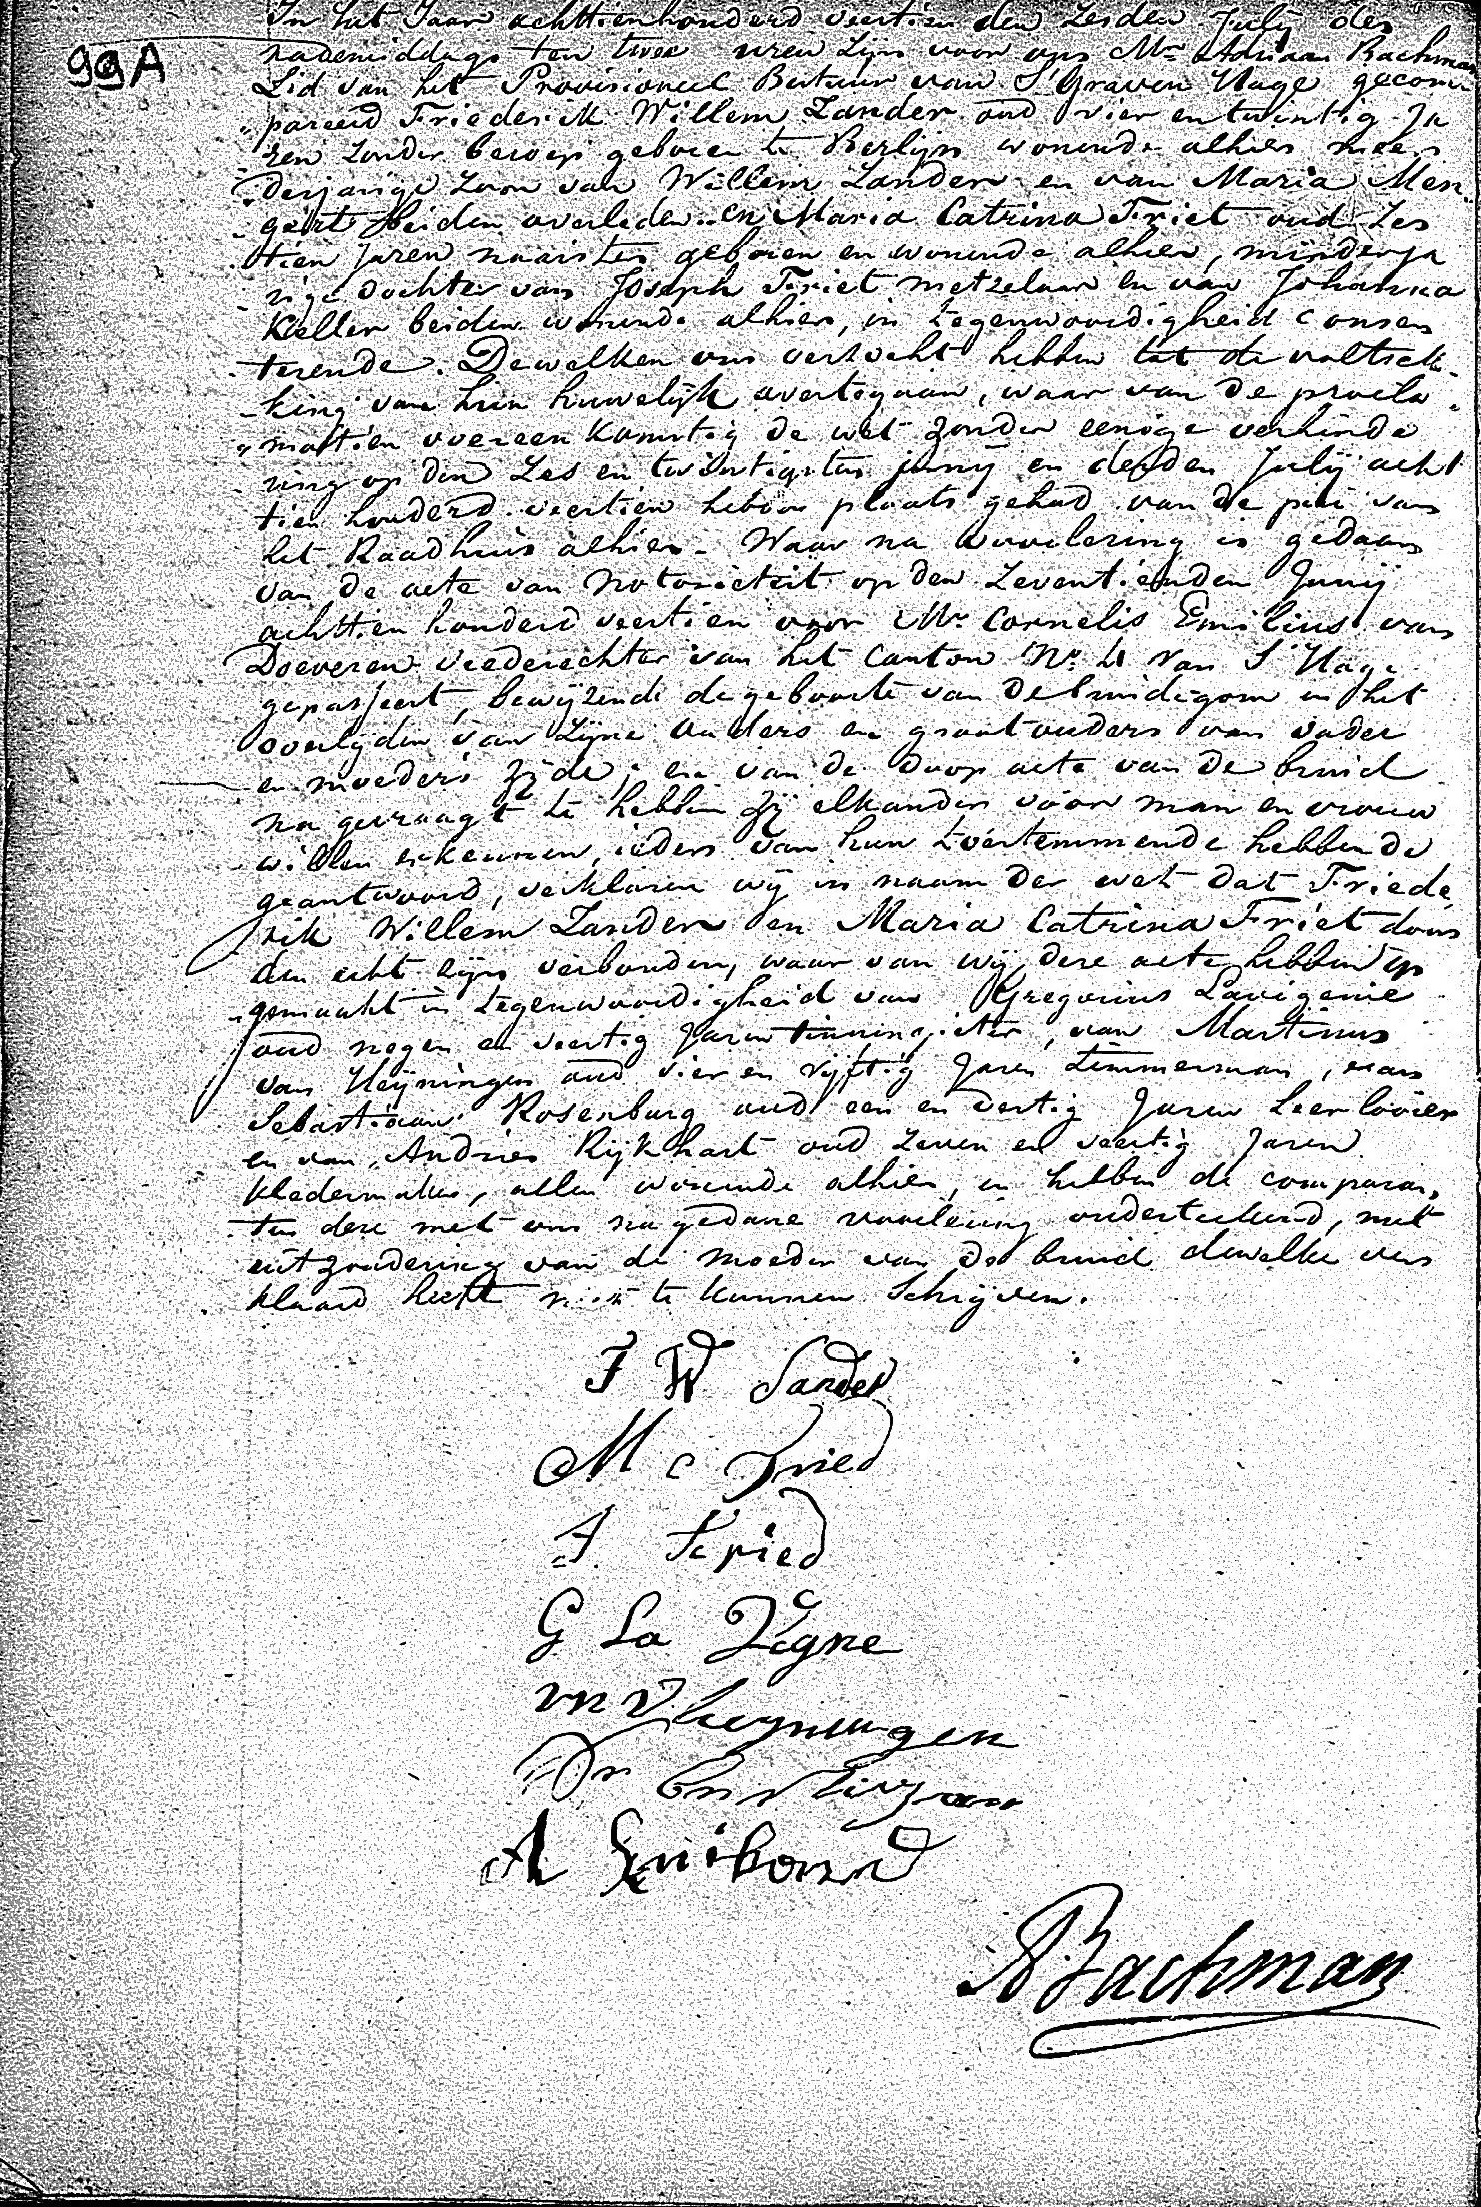 99A
In het Jaar achttienhonderd veertien den Zesden July des
nademiddags ten twee uren zijn voor ons Mr Adriaan Bachman
Lid van het Provisioneel Bestuur van S'Graven Hage gecom
pareerd Friederik Willem Zander oud vier en twintig Ja
ren zonder beroep geboren te Berlijn wonende alhier meer
derjarige Zoon van Willem Zander en van Maria Men
gert beiden overleden en Maria Catrina Friet oud Zes
tien Jaren naaister geboren en wonende alhier, minderja
rige dochter van Joseph Friet metzelaar en van Johanna
Keller beiden wonende alhier, in tegenwoordigheid consen
terende. Dewelken ons verzocht hebben tot de voltrek
king van hun huwelijk overtegaan, waar van de procla
matien overeenkomstig de wet zonder eenige verhinde
ring op den Zes en twintigsten junij en derden Julij acht
tien honderd veertien hebben plaats gehad van de puie van
het Raadhuis alhier. Waar na voorlezing is gedaan
van de acte van Notorieteit op den Zeventienden Junij
achttien honderd veertien voor Mr Cornelis Emilius van
Doeveren vrederechter van het Canton No. van S'Hage
gepasseert, bewijzende de geboorte van de bruidegom en het
overlijden van Zijne ouders en grootouders van vader
en moeders zijde, en van de doop acte van de bruid
na gevraagt te hebben zij elkander voor man en vrouw
willen erkennen, ieder van hun toestemmende hebbende
geantwoord, verklaren wij in naam der wet dat Friede
rik Willem Zander en Maria Catrina Friet door
den echt zijn verbonden, waar van wij deze acte hebben op
gemaakt in tegenwoordigheid van Gregorius Lavigenie
oud negen en veertig Jaren tinnegieter, van Martinus
van Heijningen oud vier en vijftig Jaren timmerman, van
Sebastiaan Rosenburg oud een en dertig Jaren Leerlooier
en van Andries Rijkhart oud Zeven en veertig Jaren
kledermaker, allen wonende alhier, en hebben de comparan
ten deze met ons na gedane voorlezing onderteekend, met
uitzondering van de moeder van de bruid dewelke ver
klaard heeft niet te kunnen Schrijven.
F W Sander
M C Fried
J Fried
G La Vigne
M V heyningen
A
ABachman